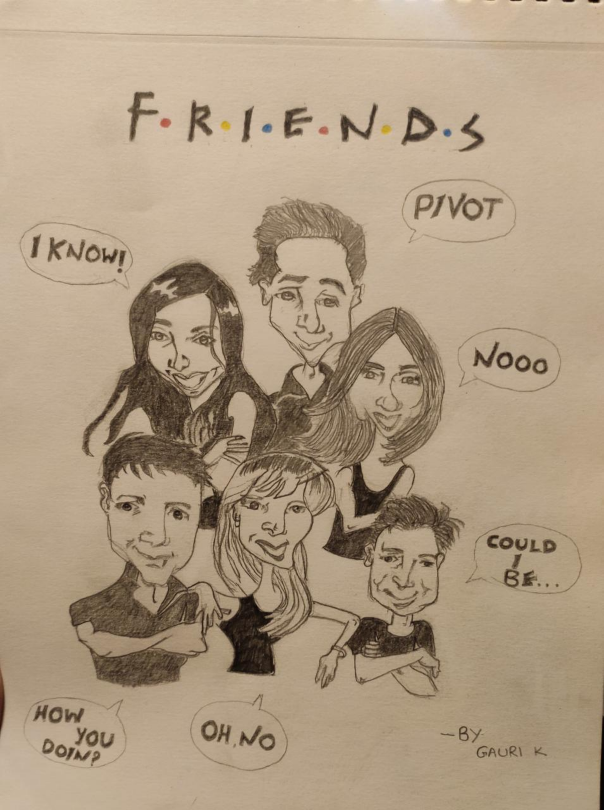 F•R•I•E•N•D•S
PIVOT
I KNOW!
NOOO
COULD
I
BE...
HOW
YOU
DOIN?
OH, NO
—BY
GAURI K